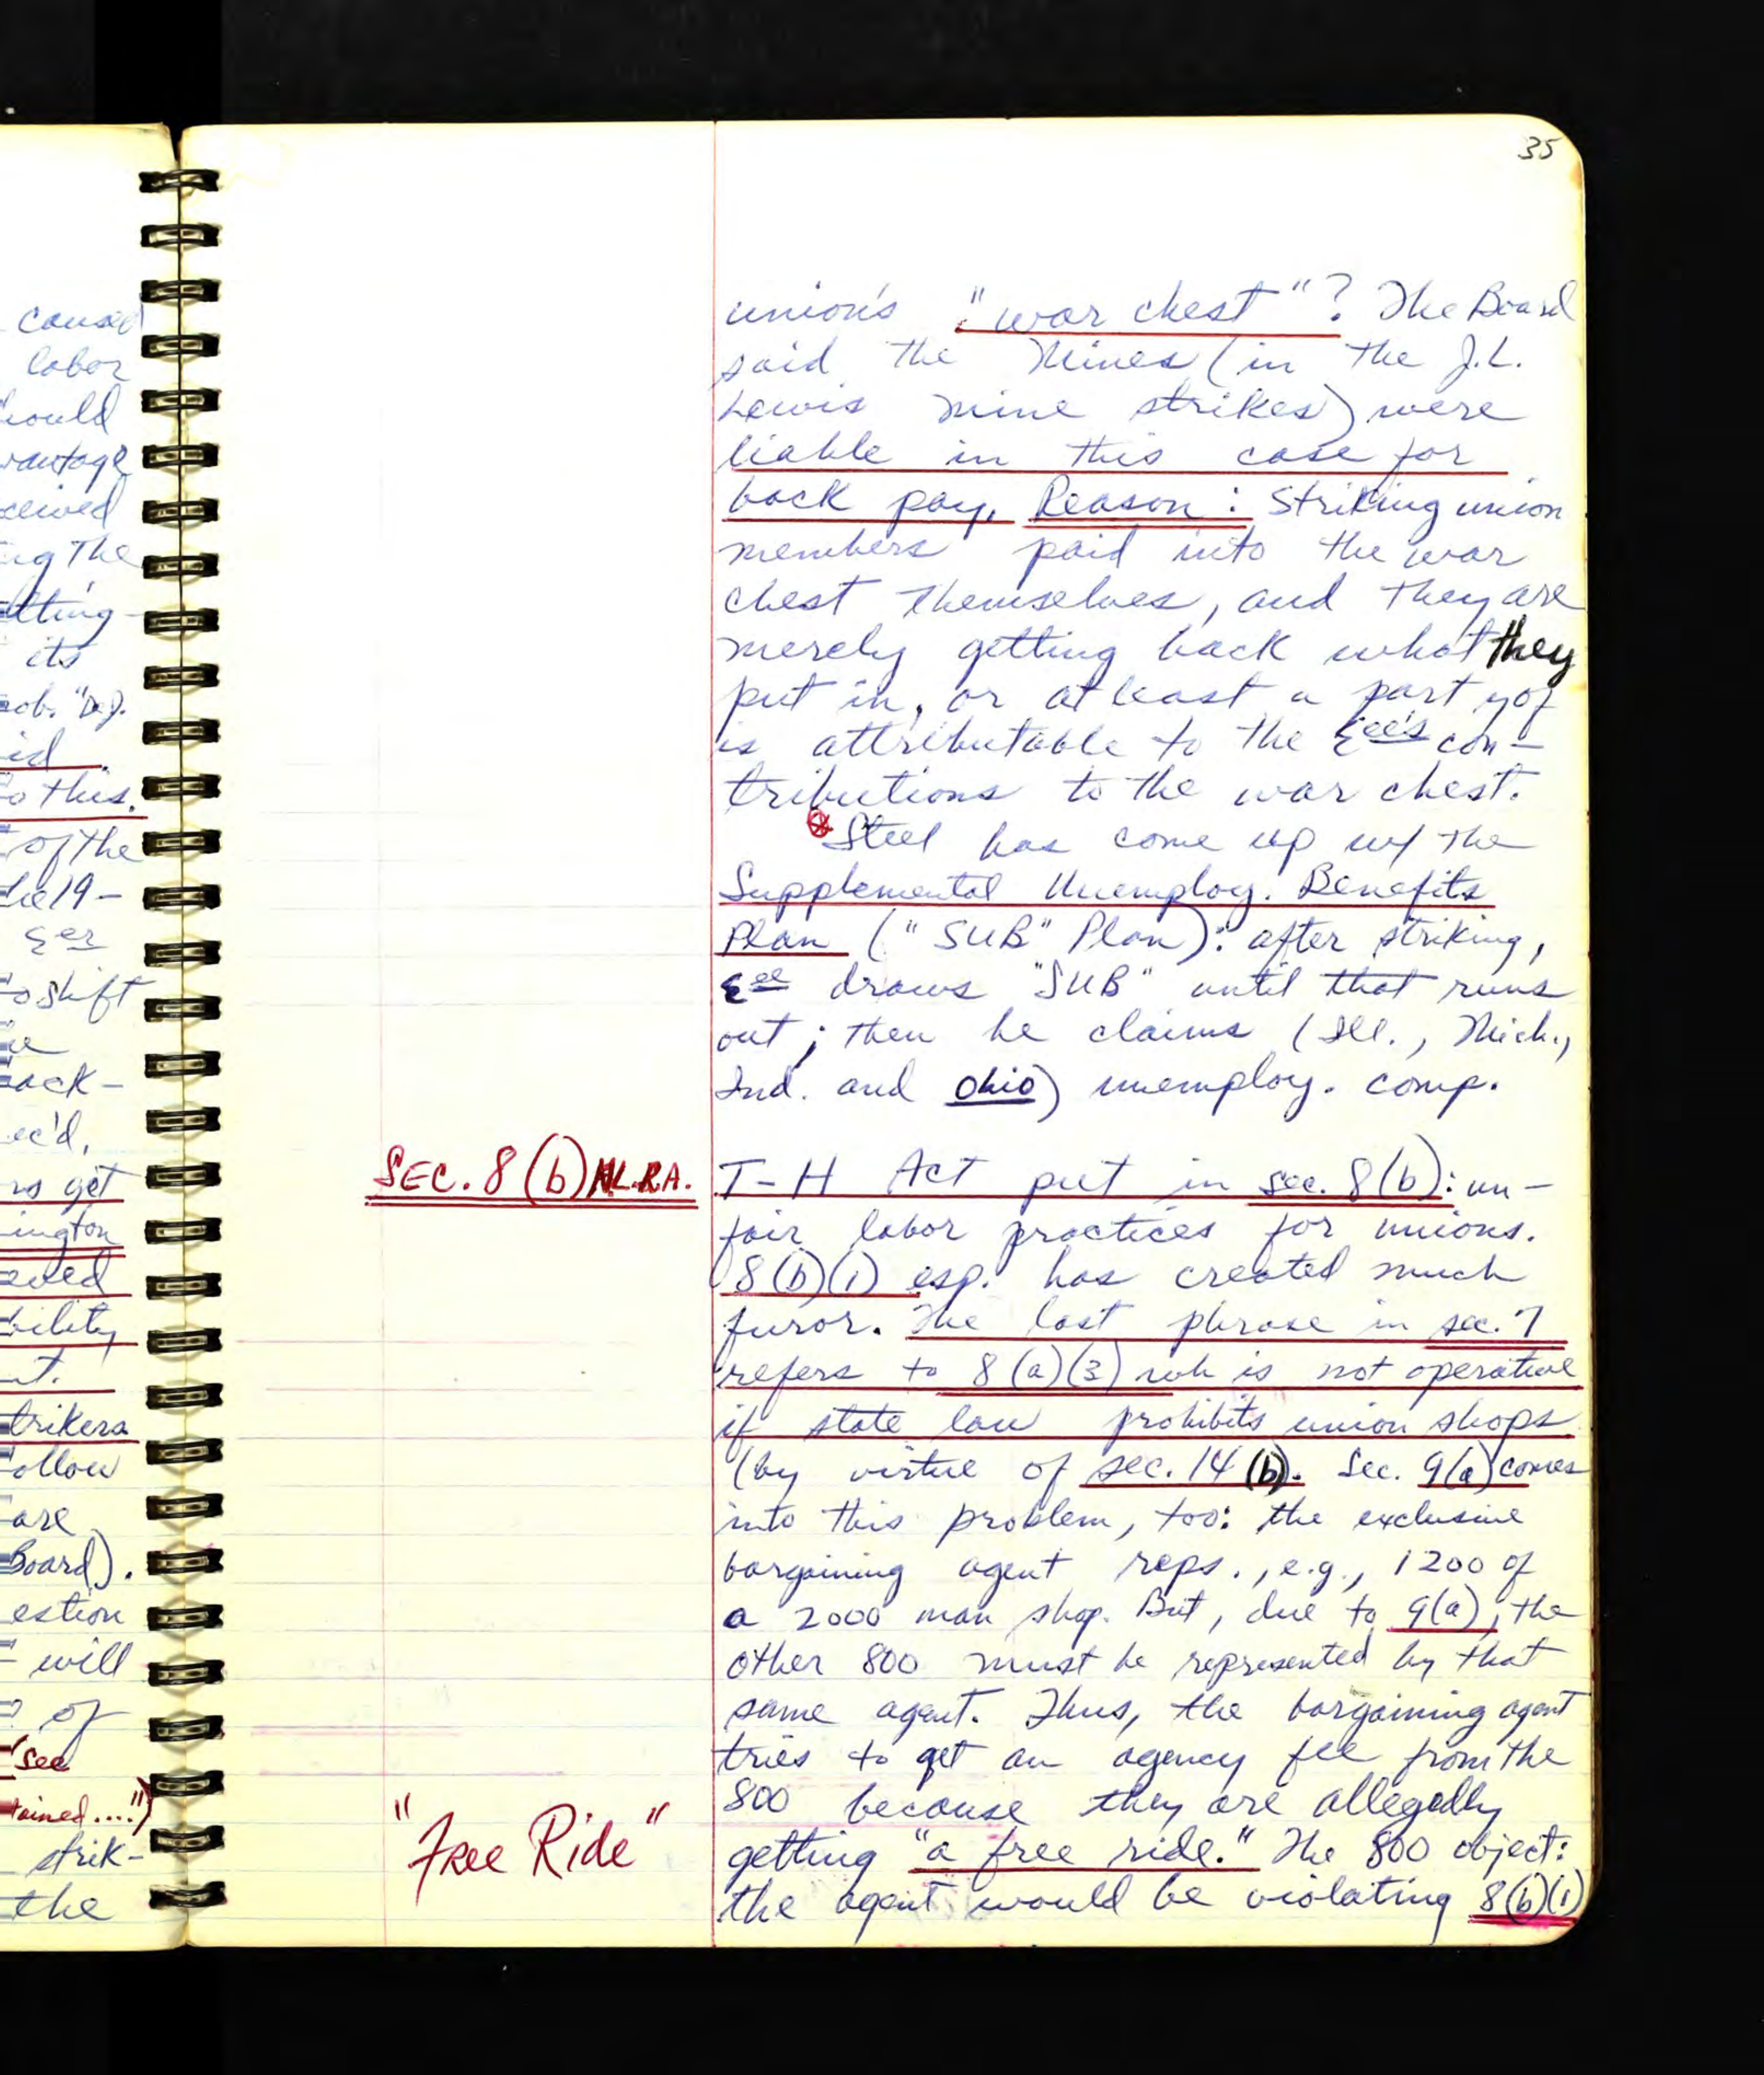 35
caused
labor
vantage
ceived
ng the
its
id.
o this.
of the
he 19-
ξer
to shift
ack-
ec'd,
rs get
ington
bility
t.
trikers
ollow
are
Board).
estion
will
of
(see
tained....")
strik-
the
union's "war chest"? The Board
said the Mines (in the J.L.
Lewis mine strikes) were
liable in this case for
back pay. Reason: Striking union
members paid into the war
chest themselves, and they are
merely getting back what they
put in, or at least a part yof
is attributable to the ξee's con-
tributions to the war chest.
⊗ Steel has come up w/ the
Supplemental Unemploy. Benefits
Plan ("SUB" Plan): after striking,
ξee draws "SUB" until that runs
out; then he claims (Ill., Mich.,
Ind. and Ohio) unemploy. comp.
SEC. 8(b) N.L.R.A.
T-H Act put in sec. 8(b): un-
fair labor practices for unions.
8(b)(1) esp. has created much
furor. The last phrase in sec. 7
refers to 8(a)(3) wh is not operative
if state law prohibits union shops
(by virtue of sec. 14(b). Sec. 9(a) comes
into this problem, too: the exclusive
bargaining agent reps., e.g., 1200 of
a 2000 man shop. But, due to 9(a), the
other 800 must be represented by that
same agent. Thus, the bargaining agent
tries to get an agency fee from the
800 because they are allegedly
"Free Ride"
getting "a free ride." The 800 object:
the agent would be violating 8(b)(1)